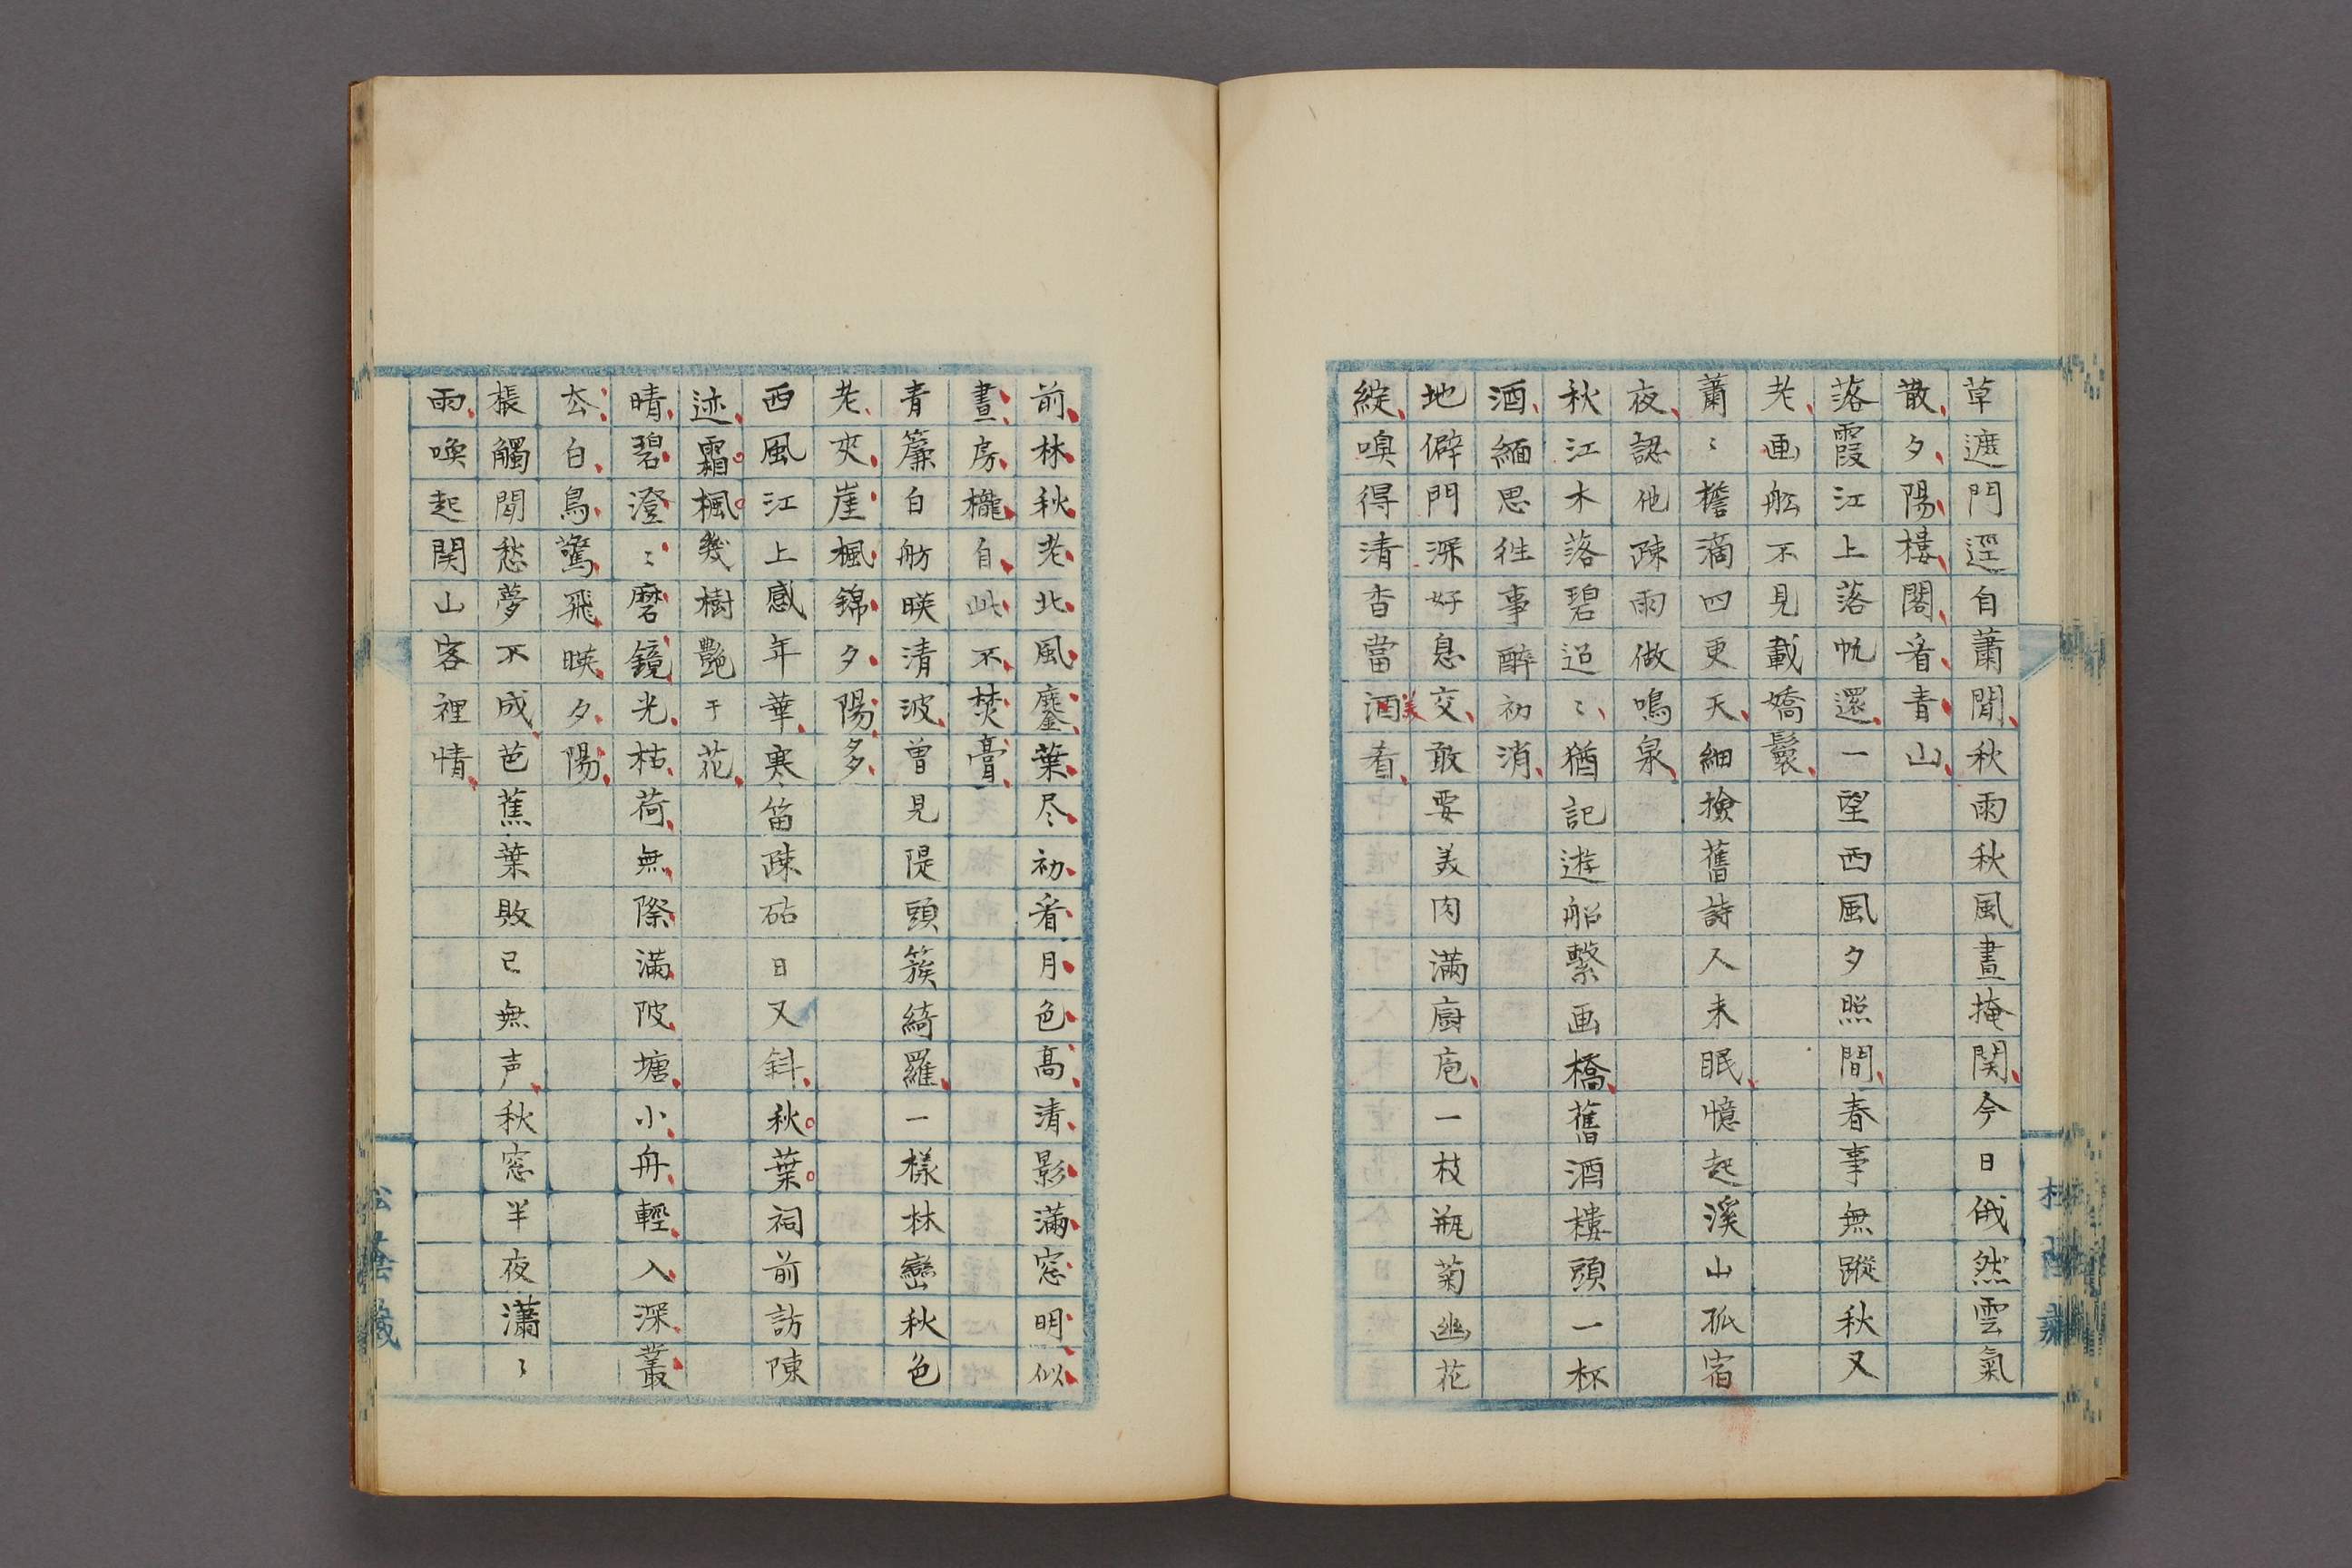 草遮門逕自蕭閒秋雨秋風晝掩関今日俄然雲氣
散夕陽樓閣看青山
落霞江上落帆還一望西風夕照間春事無蹤秋又
老画舩不見載嬌鬟
蕭〻檐滴四更天細撿舊詩人未眠憶起溪山孤宿
夜認他疎雨做鳴泉
秋江木落碧迢〻猶記遊船繋画橋舊酒樓頭一杯
酒緬思徃事醉初消
地僻門深好息交敢要美肉満廚庖一枝瓶菊幽花
綻嗅得清香當酒肴
美
前林秋老北風鏖葉尽初看月色高清影満窓明似
晝房櫳自此不焚膏
青簾白舫暎清波曽見隄頭簇綺羅一樣林巒秋色
老夾崖楓錦夕陽多
西風江上感年華寒笛疎砧日又斜秋葉祠前訪陳
迹霜楓幾樹艶于花
晴碧澄〻磨鏡光枯荷無際満陂塘小舟輕入深叢
去白鳥驚飛暎夕陽
棖觸閒愁夢不成芭蕉葉敗已無声秋窓半夜瀟〻
雨喚起関山客裡情
松蔭藏